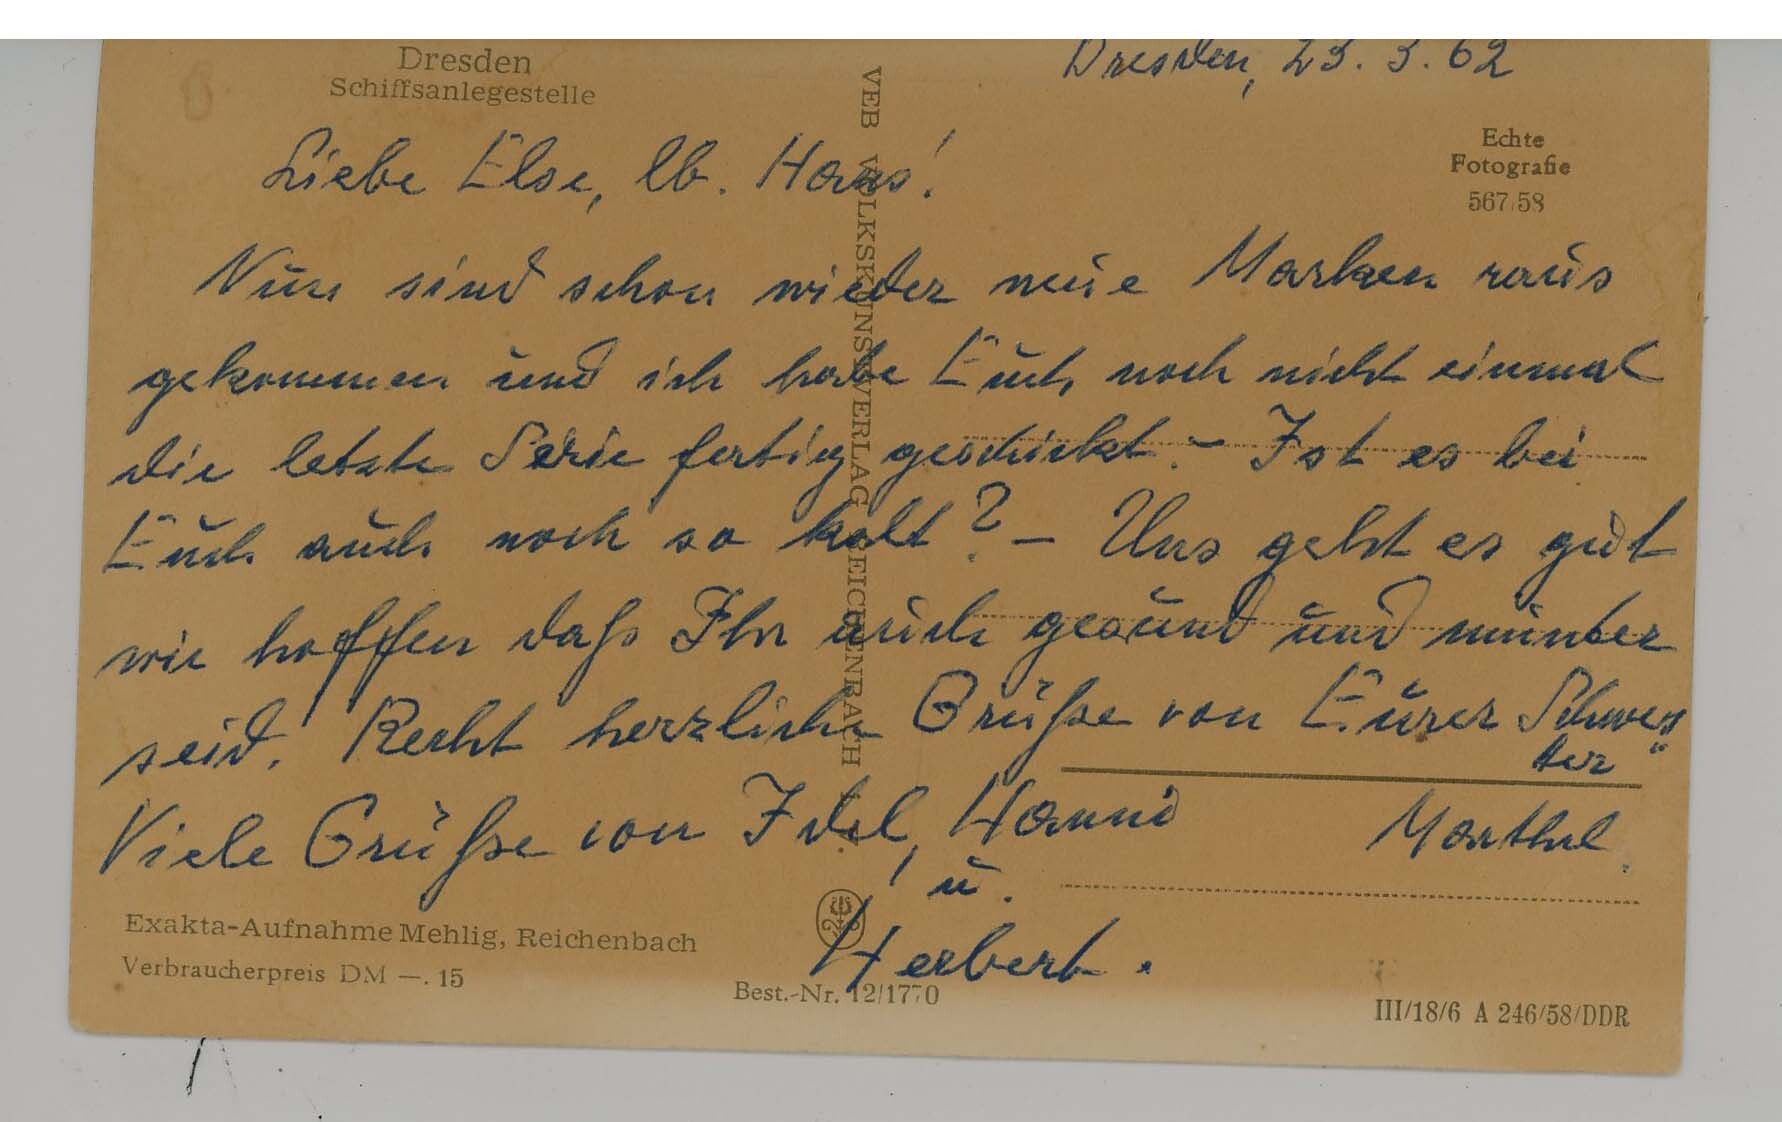 Dresden
Schiffsanlegestelle
Dresden, 23. 3. 62
Echte
Fotografie
567/58
Liebe Else, lb. Hans!
Nun sind schon wieder neue Marken raus
gekommen und ich habe Euch noch nicht einmal
die letzte Serie fertig geschickt. – Ist es bei
Euch auch noch so kalt? – Uns geht es gut
wir hoffen daß Ihr auch gesund und munter
seid. Recht herzliche Grüße von Eurer Schwes
ter"
Marthel.
Viele Grüße von Idel, Hanni
u.
Herbert.
VEB VOLKSKUNSTVERLAG REICHENBACH i. V.
Exakta-Aufnahme Mehlig, Reichenbach
Verbraucherpreis DM —.15
Best.-Nr. 12/1770
III/18/6 A 246/58/DDR